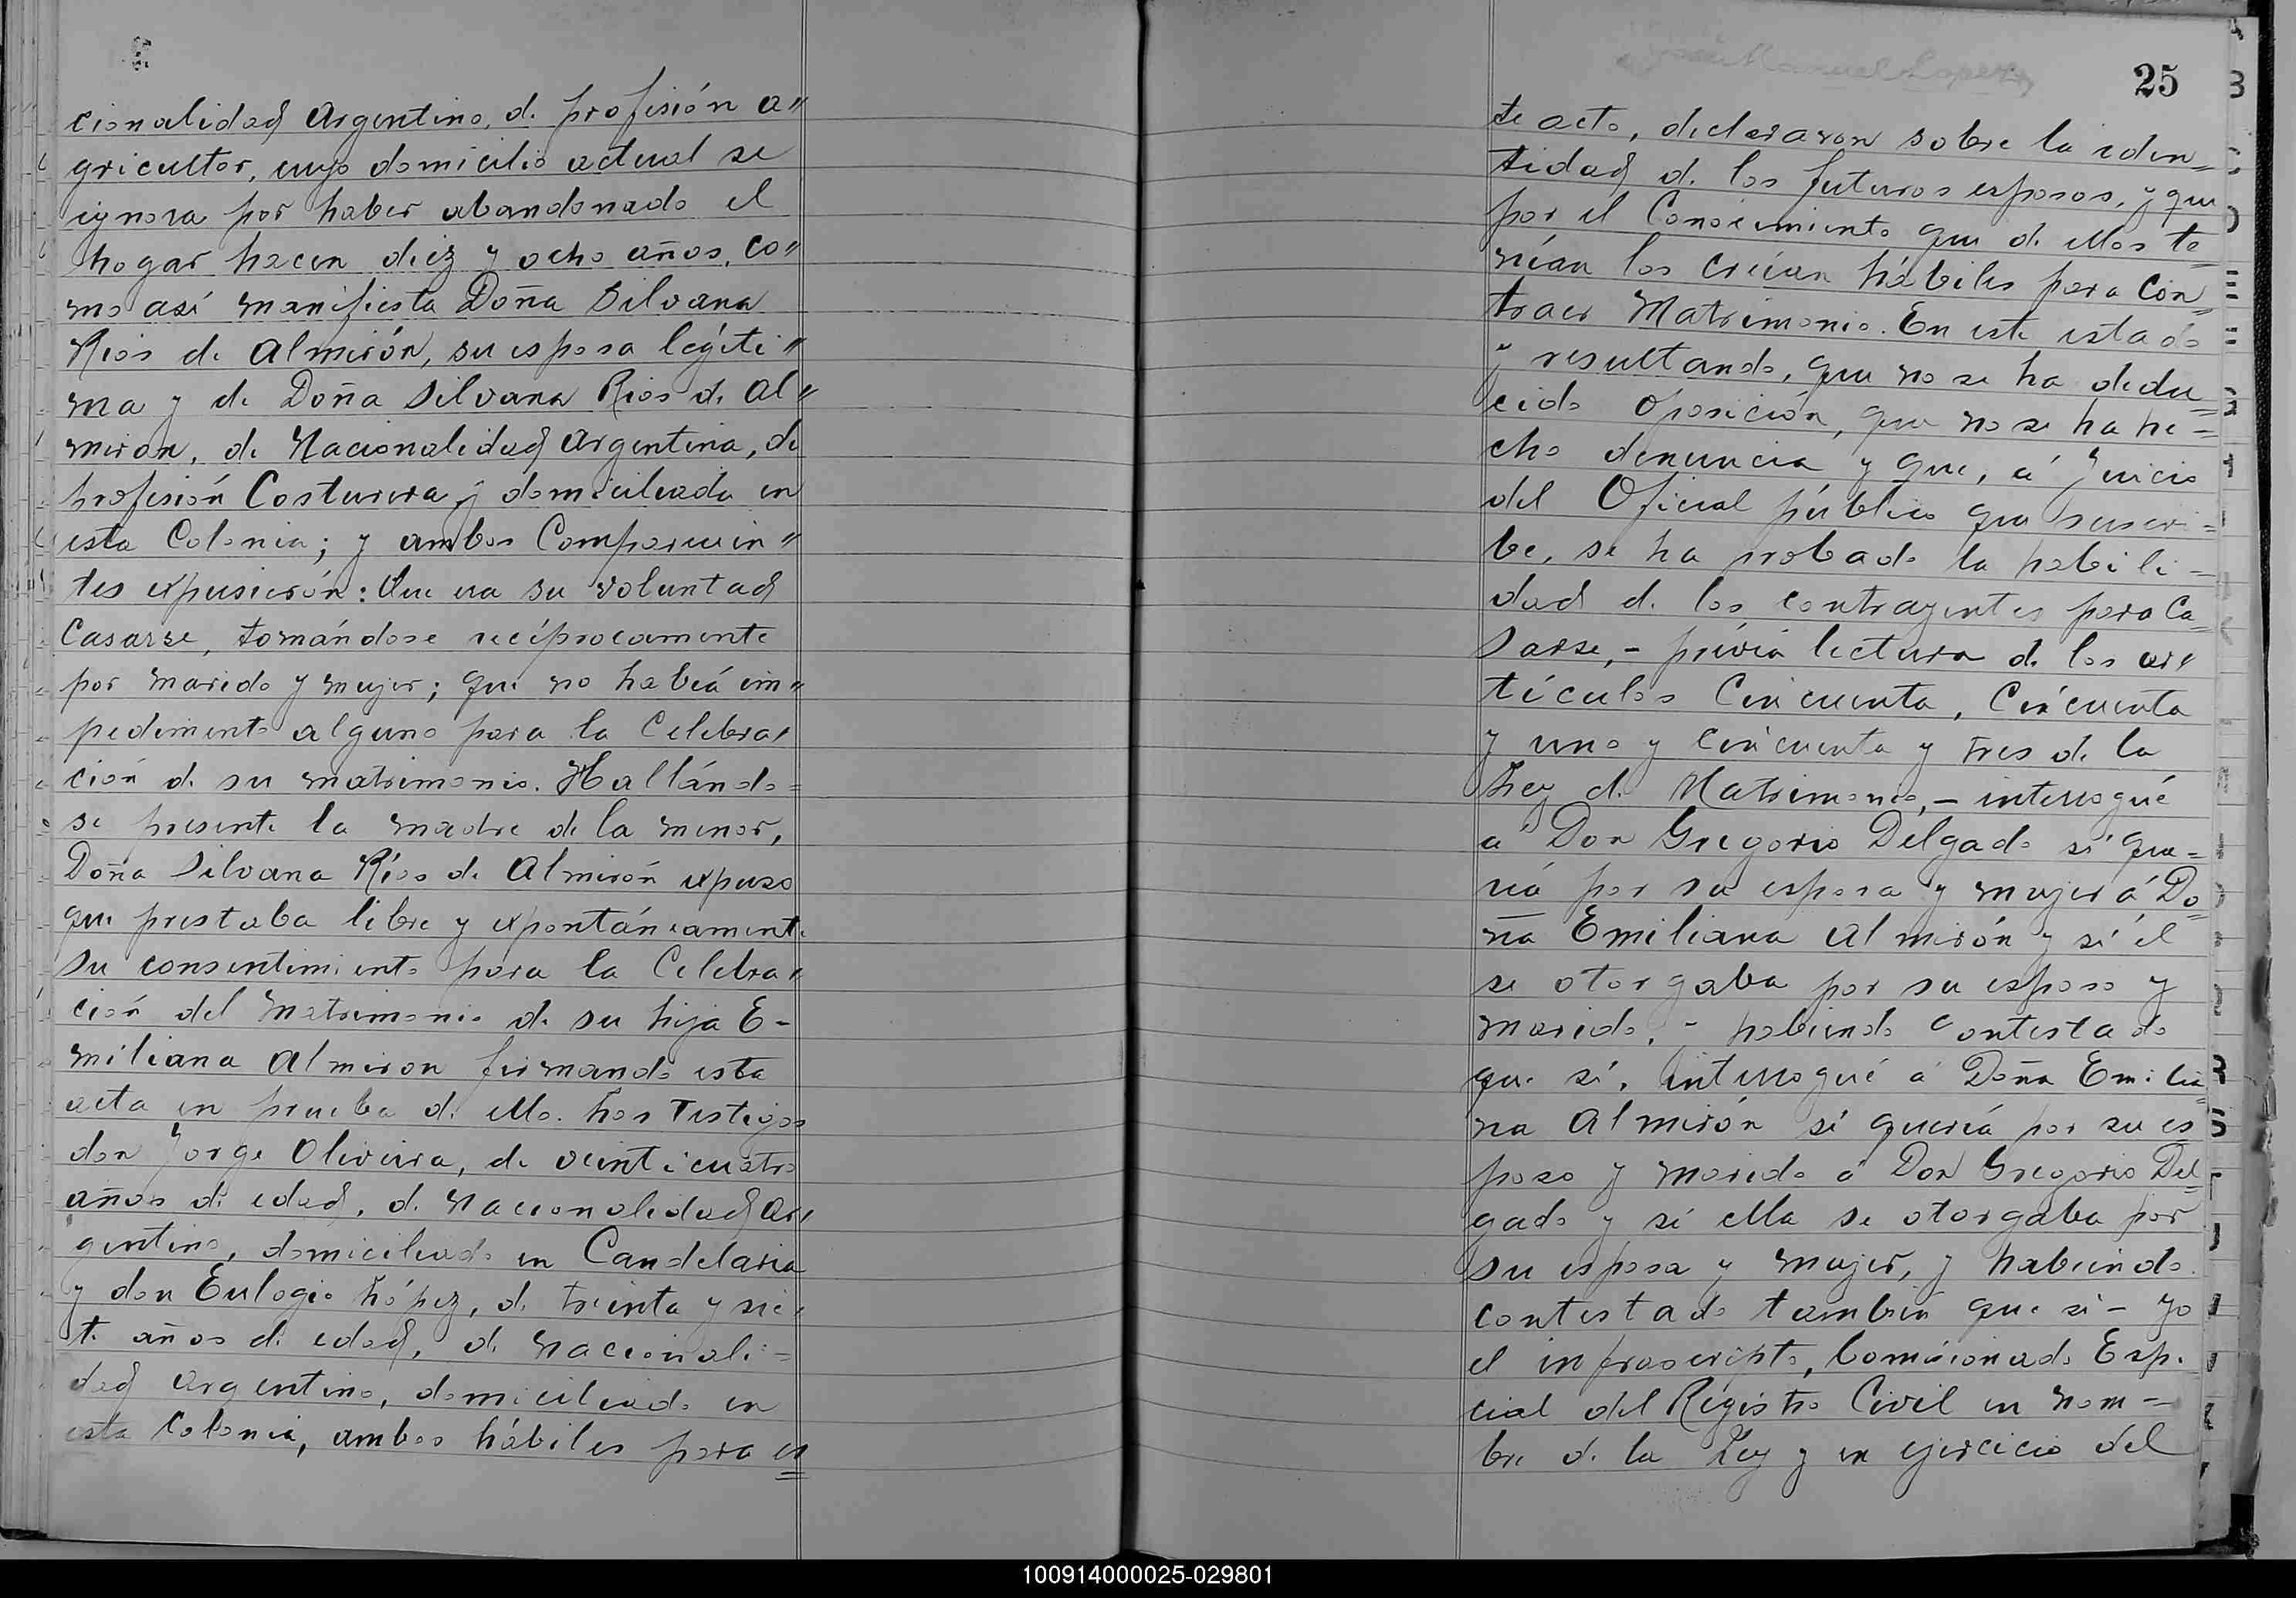 cionalidad Argentino, de profisión a"
gricultor, cuyo domicilio actual se
ignora por haber abandonado el
hogar hacen diez y ocho años, co"
mo así manifiesta Doña Silvana
Rios de Almirón, su esposa legíti"
ma y de Doña Silvana Rios de Al"
miron, de Nacionalidad Argentina, de
profesión Costurera y domiciliada en
esta Colonia; y ambos Comparecien"
tes expusierón: Que era su voluntad
Casarse, tomándose recíprocamente
por marido y mujer; que no habiá im"
pedimento alguno para la Celebra"
ción de su matrimonio. Hallándo=
se presente la madre de la menor,
Doña Silvana Ríos de Almirón expuso
que prestaba libre y expontáneamente
su consentimiento para la Celebra"
ción del Matrimonio de su hija E-
miliana Almiron firmando esta
acta en prueba de ello. Los Testigos
don Jorge Oliveira, de veinticuatro
años de edad, de nacionalidad Ar"
gentino, domiciliado en Candelaria
y don Eulogio López, de treinta y sie"
te años de edad, de nacionali=
dad Argentino, domiciliado en
esta Colonia, ambos hábiles para es
25
te acto, declararon sobre la iden=
tidad de los futuros esposos, y que
por el Conocimiento que de ellos te=
nían los creían hábiles para Con=
traer Matrimonio. En este estado
y resultando, que no se ha dedu=
cido oposición, que no se ha he=
cho denuncia y que, á Juicio
del Oficial público que suscri=
be, se ha probado la habili=
dad de los contrayentes para Ca=
sarse,- prévia lectura de los ar"
tículos Cincuenta, Cincuenta
y uno y cincuenta y tres de la
Ley de Matrimonio,- interrogué
á Don Gregorio Delgado si que=
riá por su esposa y mujer á Do=
ña Emiliana Almirón y si él
se otorgaba por su esposo y
marido,- habiendo Contestado
que sí, interrogué á Doña Emilia=
na Almirón si queriá por su es
poso y marido á Don Gregorio Del=
gado y si ella se otorgaba por
su esposa y mujer, y habiendo
contestado también que si- yo
el infrascripto, Comisionado Espe
cial del Registro Civil en nom=
bre de la Ley y en ejercicio del
100914000025-029801